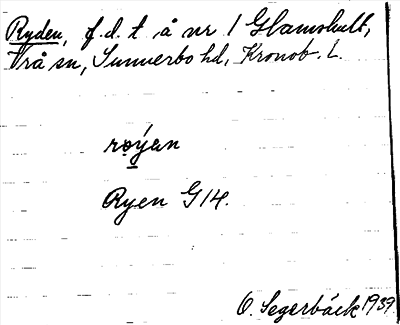 Ryden, f.d. t å nr 1 Glamshult,
Vrå sn, Sunnerbo hd, Kronob. L.
røýan
Ryen G 14.
O. Segerbäck 1939